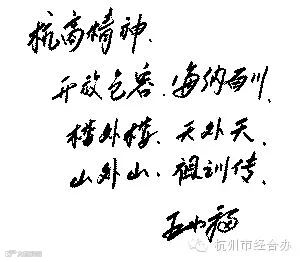 杭商精神、
开放包容、海纳百川、
楼外楼、天外天、
山外山、祖训传、
王水福
杭州市经合办